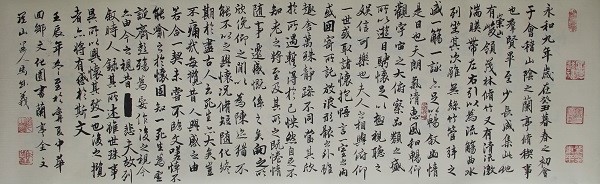 永和九年歲在癸丑暮春之初會
于會稽山陰之蘭亭脩稧事
也群賢畢至少長咸集此地
有崇山峻領茂林脩竹又有清流激
湍暎帶左右引以為流觴曲水
列坐其次雖無絲竹管弦之
盛一觴一詠亦足以暢敘幽情
是日也天朗氣清惠風和暢仰
觀宇宙之大俯察品類之盛
所以遊目騁懷足以極視聽之
娛信可樂也夫人之相與俯仰
一世或取諸懷抱悟言一室之內
或因寄所託放浪形骸之外雖
趣舍萬殊靜躁不同當其欣
於所遇暫得於己怏然自足不
知老之將至及其所之既惓情
隨事遷感慨係之矣向之所
欣俛仰之閒以為陳迹猶不
能不以之興懷況脩短隨化終
期於盡古人云死生亦大矣豈
不痛哉每攬昔人興感之由
若合一契未嘗不臨文嗟悼不
能喻之於懷固知一死生為虛
誕齊彭殤為妄作後之視今
亦由今之視昔悲夫故列
敘時人錄其所述雖世殊事
異所以興懷其致一也後之攬
者亦將有感於斯文
壬辰年冬至於中華
回鄉文化園書蘭亭全文
山人馬義